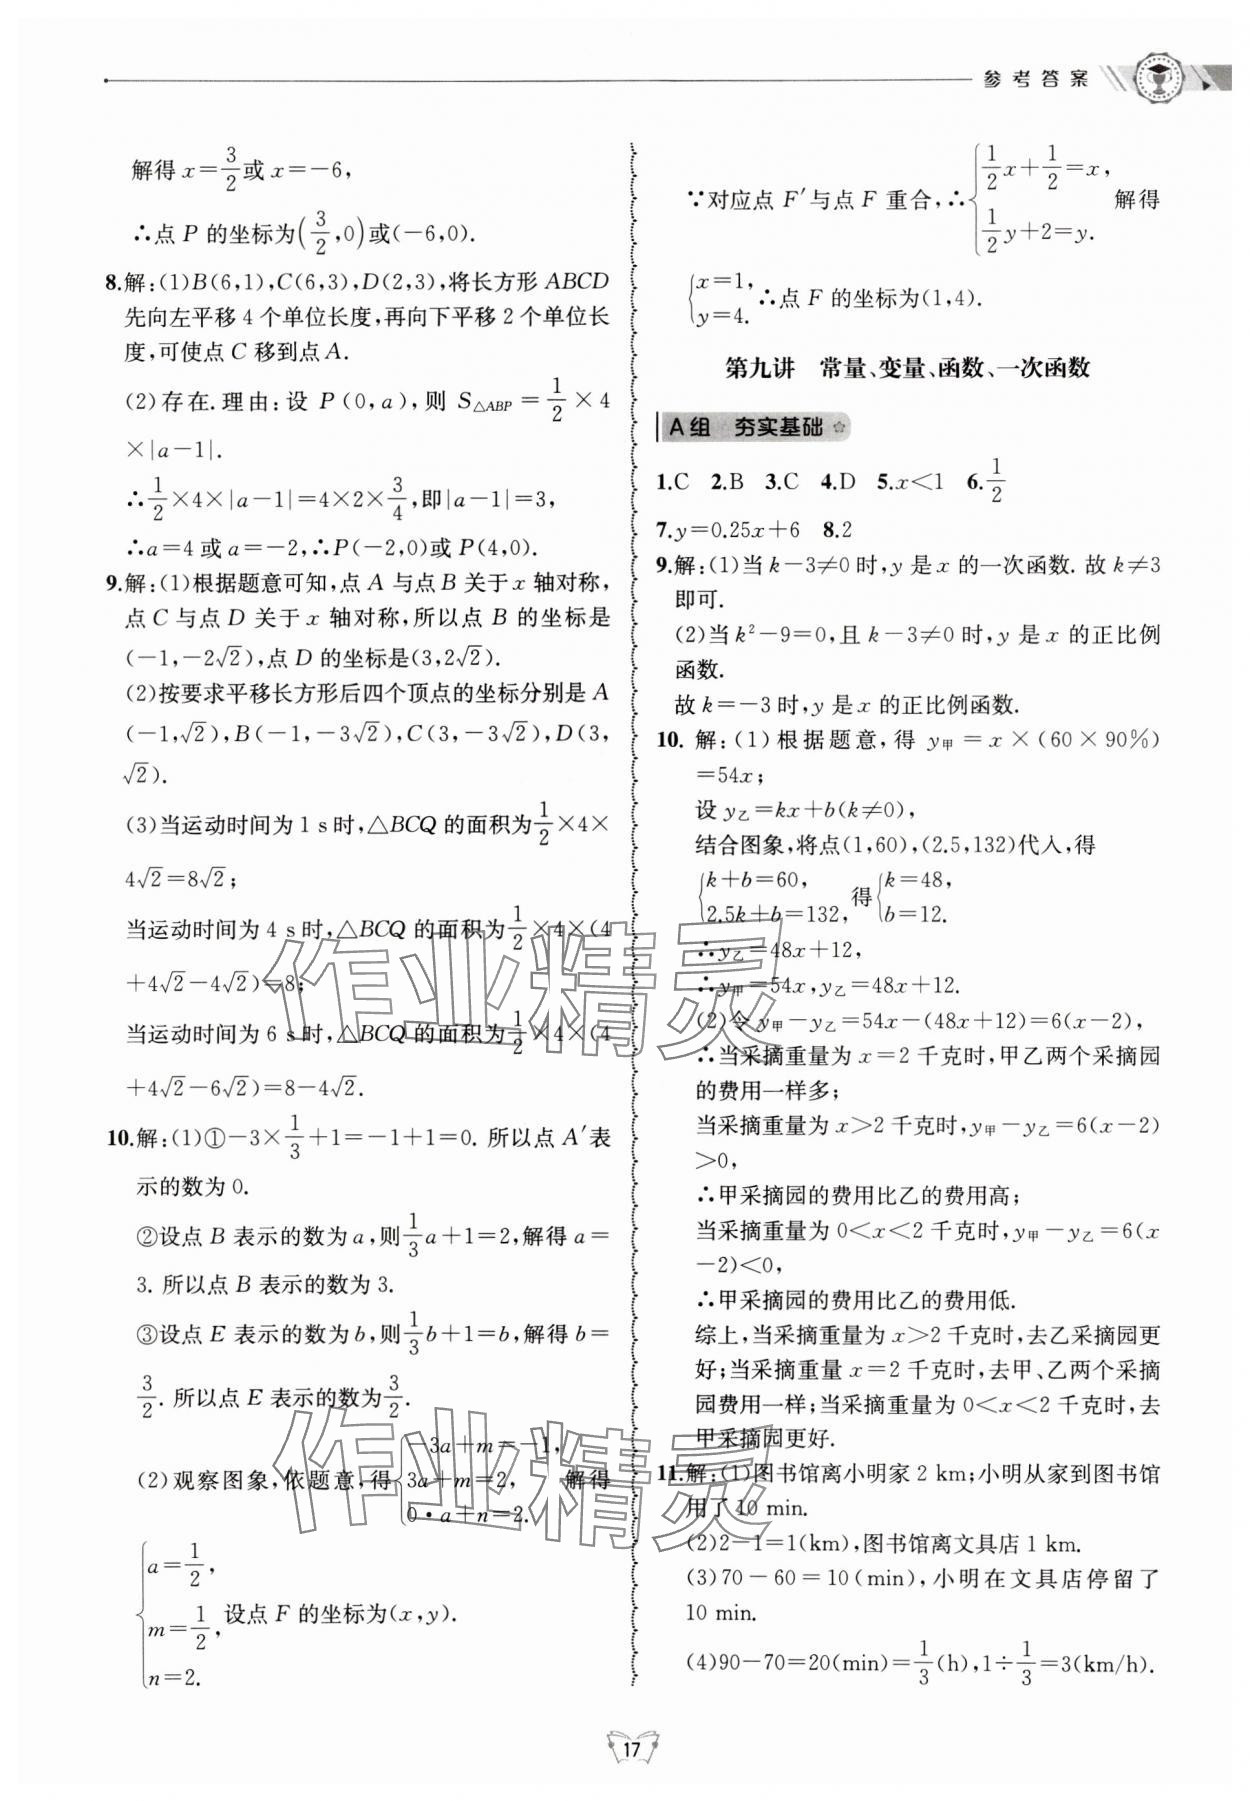 参考答案
解得 x=3/2或 x=-6,
∴点 P 的坐标为(3/2,0)或(-6,0).
8.解:(1)B(6,1),C(6,3),D(2,3),将长方形 ABCD
先向左平移 4 个单位长度,再向下平移 2 个单位长
度,可使点 C 移到点 A.
(2)存在.理由:设 P(0,a),则 S△ABP=1/2×4
×|a-1|.
∴1/2×4×|a-1|=4×2×3/4,即|a-1|=3,
∴a=4 或 a=-2,∴P(-2,0)或 P(4,0).
9.解:(1)根据题意可知,点 A 与点 B 关于 x 轴对称,
点 C 与点 D 关于 x 轴对称,所以点 B 的坐标是
(-1,-2√2),点 D 的坐标是(3,2√2).
(2)按要求平移长方形后四个顶点的坐标分别是 A
(-1,√2),B(-1,-3√2),C(3,-3√2),D(3,
√2).
(3)当运动时间为 1 s 时,△BCQ 的面积为1/2×4×
4√2=8√2;
当运动时间为 4 s 时,△BCQ 的面积为1/2×4×(4
+4√2-4√2)=8;
当运动时间为 6 s 时,△BCQ 的面积为1/2×4×(4
+4√2-6√2)=8-4√2.
10.解:(1)①-3×1/3+1=-1+1=0. 所以点 A′表
示的数为 0.
②设点 B 表示的数为 a,则1/3a+1=2,解得 a=
3. 所以点 B 表示的数为 3.
③设点 E 表示的数为 b,则1/3b+1=b,解得 b=
3/2. 所以点 E 表示的数为3/2.
(2)观察图象,依题意,得{-3a+m=-1, 3a+m=2, 0·a+n=2. 解得
{a=1/2, m=1/2, n=2. 设点 F 的坐标为(x,y).
∵对应点 F′与点 F 重合,∴{1/2x+1/2=x, 1/2y+2=y. 解得
{x=1, y=4. ∴点 F 的坐标为(1,4).
第九讲 常量、变量、函数、一次函数
A组 夯实基础
1.C 2.B 3.C 4.D 5.x<1 6.1/2
7.y=0.25x+6 8.2
9.解:(1)当 k-3≠0 时,y 是 x 的一次函数. 故 k≠3
即可.
(2)当 k²-9=0,且 k-3≠0 时,y 是 x 的正比例
函数.
故 k=-3 时,y 是 x 的正比例函数.
10. 解:(1)根据题意,得 y甲=x×(60×90%)
=54x;
设 y乙=kx+b(k≠0),
结合图象,将点(1,60),(2.5,132)代入,得
{k+b=60, 2.5k+b=132, 得{k=48, b=12.
∴y乙=48x+12,
∴y甲=54x,y乙=48x+12.
(2)令 y甲-y乙=54x-(48x+12)=6(x-2),
∴当采摘重量为 x=2 千克时,甲乙两个采摘园
的费用一样多;
当采摘重量为 x>2 千克时,y甲-y乙=6(x-2)
>0,
∴甲采摘园的费用比乙的费用高;
当采摘重量为 0<x<2 千克时,y甲-y乙=6(x
-2)<0,
∴甲采摘园的费用比乙的费用低.
综上,当采摘重量为 x>2 千克时,去乙采摘园更
好;当采摘重量 x=2 千克时,去甲、乙两个采摘
园费用一样;当采摘重量为 0<x<2 千克时,去
甲采摘园更好.
11.解:(1)图书馆离小明家 2 km;小明从家到图书馆
用了 10 min.
(2)2-1=1(km),图书馆离文具店 1 km.
(3)70-60=10(min),小明在文具店停留了
10 min.
(4)90-70=20(min)=1/3(h),1÷1/3=3(km/h).
作业精灵
作业精灵
17